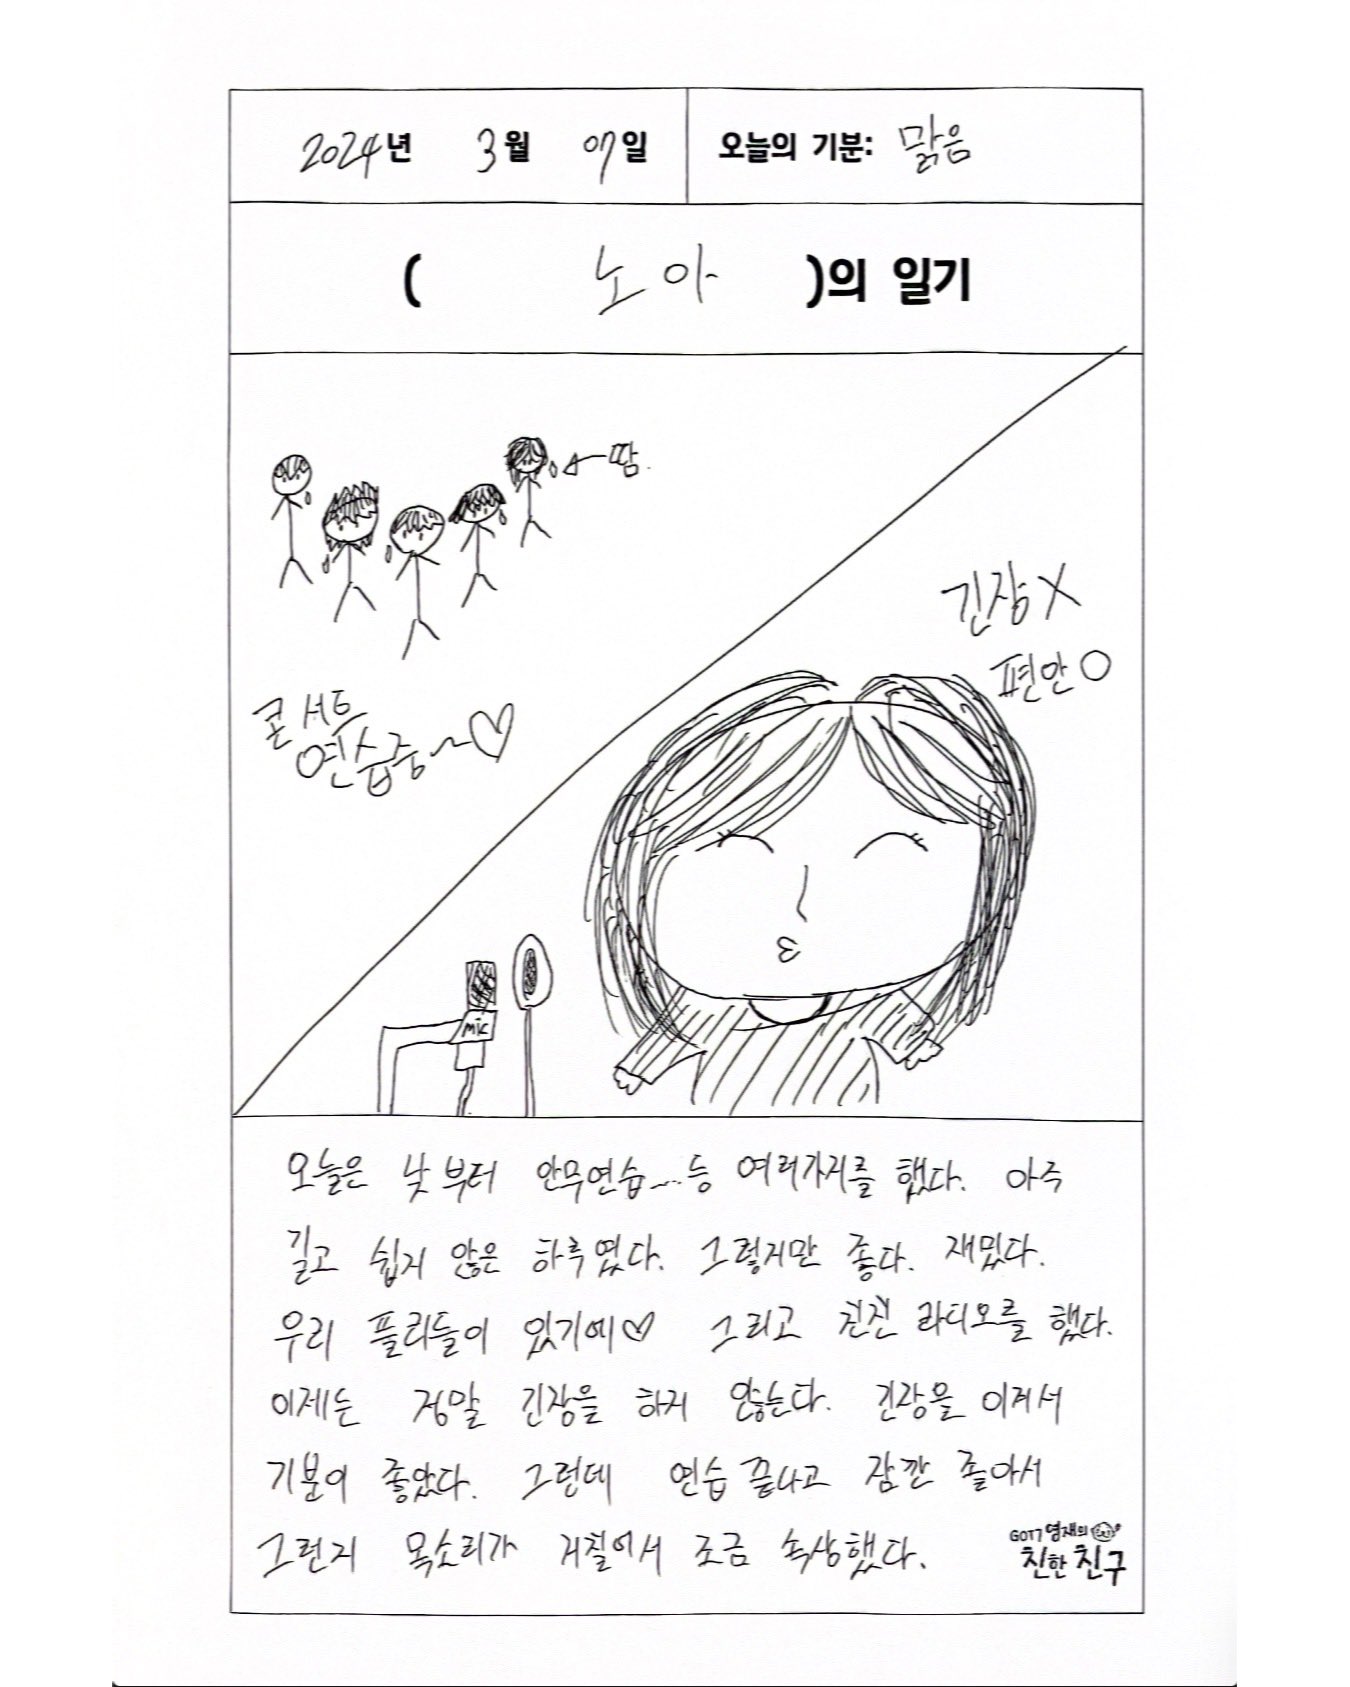 2024년 3월 07일 오늘의 기분: 맑음
( 노아 )의 일기
땀.
긴장 X
편안 O
콘서트
연습중~♡
MIC
오늘은 낮부터 안무연습....등 여러가지를 했다. 아주
길고 쉽지 않은 하루였다. 그렇지만 좋다. 재밌다.
우리 플리들이 있기에♡ 그리고 친친 라디오를 했다.
이제는 정말 긴장을 하지 않는다. 긴장을 이겨서
기분이 좋았다. 그런데 연습 끝나고 잠깐 졸아서
그런지 목소리가 거칠어서 조금 속상했다.
GOT7 영재의
친한친구